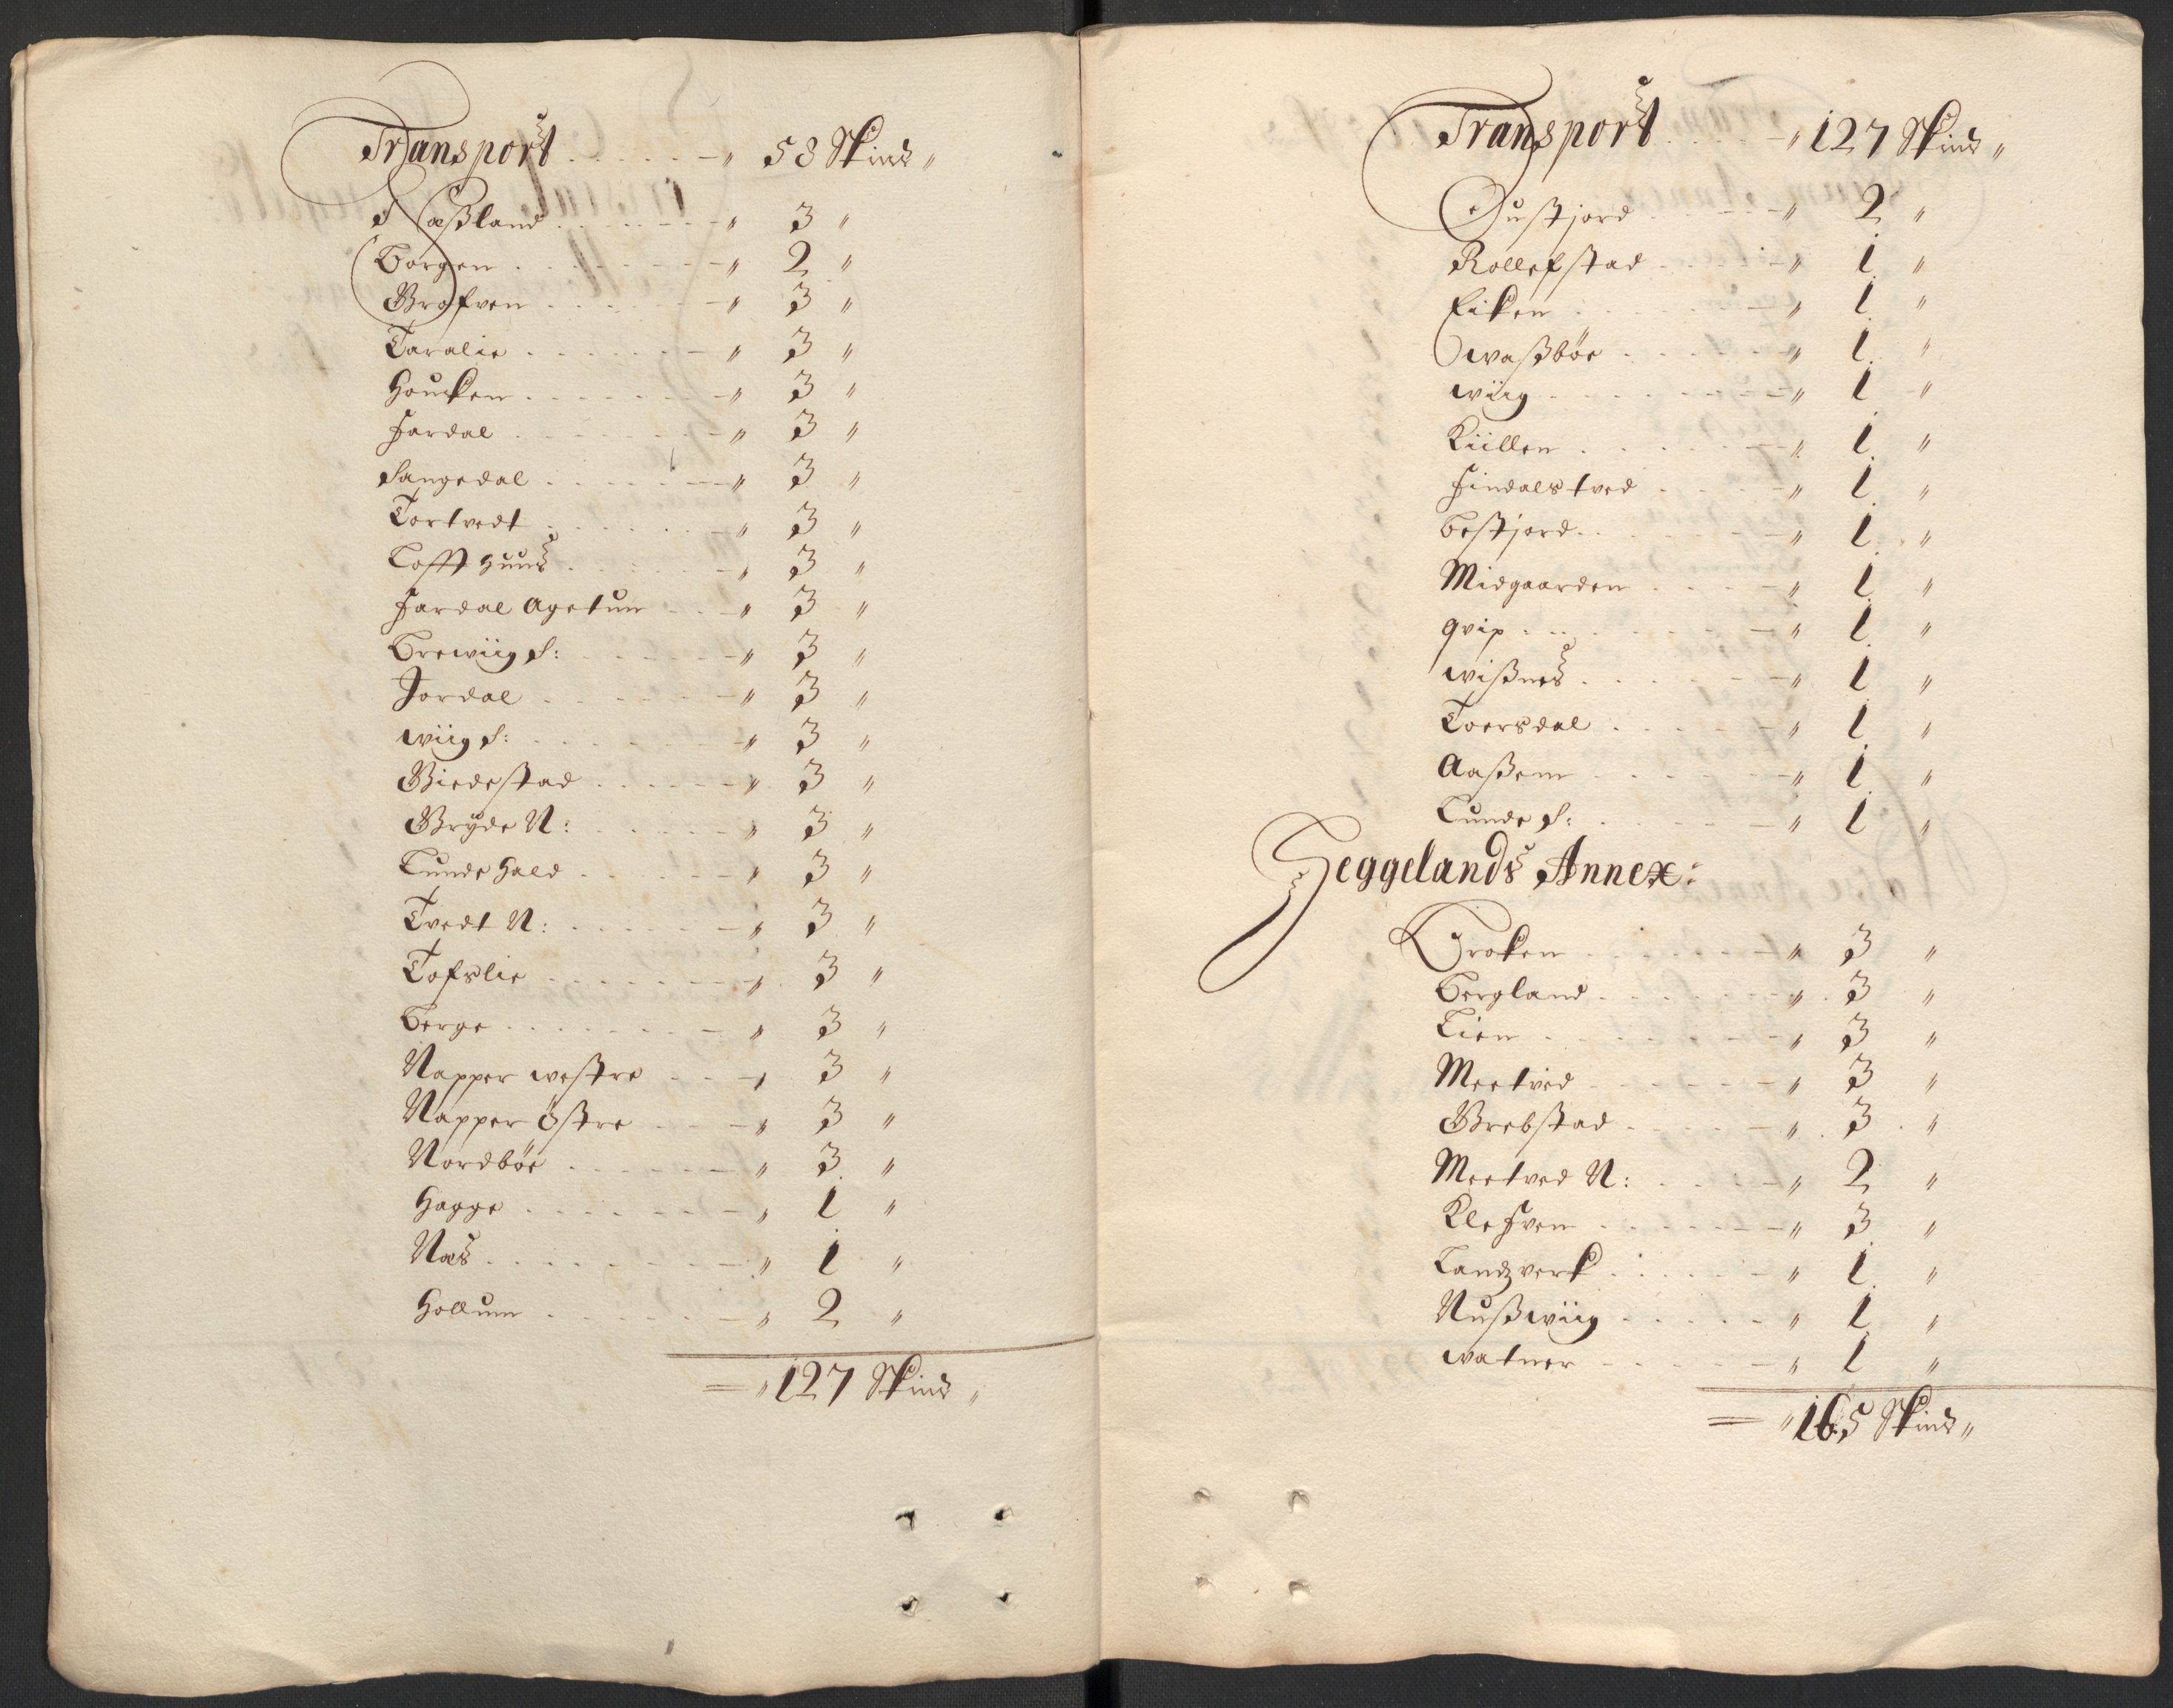 Transport . . . . . . - " 58 Skind "
Aaßland . . . . . . . - " 3 "
Borgen . . . . . . . . - " 2 "
Grefven . . . . . . . - " 3 "
Taralie . . . . . . . - " 3 "
Houcken . . . . . . . - " 3 "
Jardal . . . . . . . . - " 3 "
Sangedal . . . . . . . - " 3 "
Tortvedt . . . . . . . - " 3 "
Loffthuus . . . . . . - " 3 "
Jardal Agetun . . . - " 3 "
Brewiig S: . . . . . . - " 3 "
Jordal . . . . . . . - " 3 "
wiig S: . . . . . . . - " 3 "
Giedestad . . . . . . - " 3 "
Gryde N: . . . . . . - " 3 "
Lunde Hald . . . . . . - " 3 "
Tvedt N: . . . . . . - " 3 "
Tofslie . . . . . . . - " 3 "
Berge . . . . . . . . - " 3 "
Napper westre . . . - " 3 "
Napper östre . . . - " 3 "
Nordböe . . . . . . - " 3 "
Hagge . . . . . . . - " 1 "
Næs . . . . . . . . - " 1 "
Hollum . . . . . . . - " 2 "
= " 127 Skind "
Transport . . . . - " 127 Skind "
Gustjord . . . . . - " 2 "
Rollefstad . . . . - " 1 "
Eiken . . . . . . - " 1 "
waßböe . . . . . - " 1 "
wiig . . . . . . . - " 1 "
Kiillen . . . . . . - " 1 "
Findalstved . . . . - " 1 "
Bestjord . . . . . . - " 1 "
Midgaarden . . . . - " 1 "
qvip . . . . . . . - " 1 "
wißnes . . . . . . - " 1 "
Toersdal . . . . . - " 1 "
Aaßem . . . . . . - " 1 "
Lunde S: . . . . . - " 1 "
Heggelands Annex:
Kroken . . . . . . - " 3 "
Bergland . . . . . . - " 3 "
Lien . . . . . . . - " 3 "
Meetved . . . . . . - " 3 "
Grebstad . . . . . - " 3 "
Meetved N: . . . . - " 2 "
Klefven . . . . . . - " 3 "
Landzverk . . . . . - " 1 "
Nußwiig . . . . . - " 1 "
watner . . . . . . - " 1 "
= " 165 Skind "